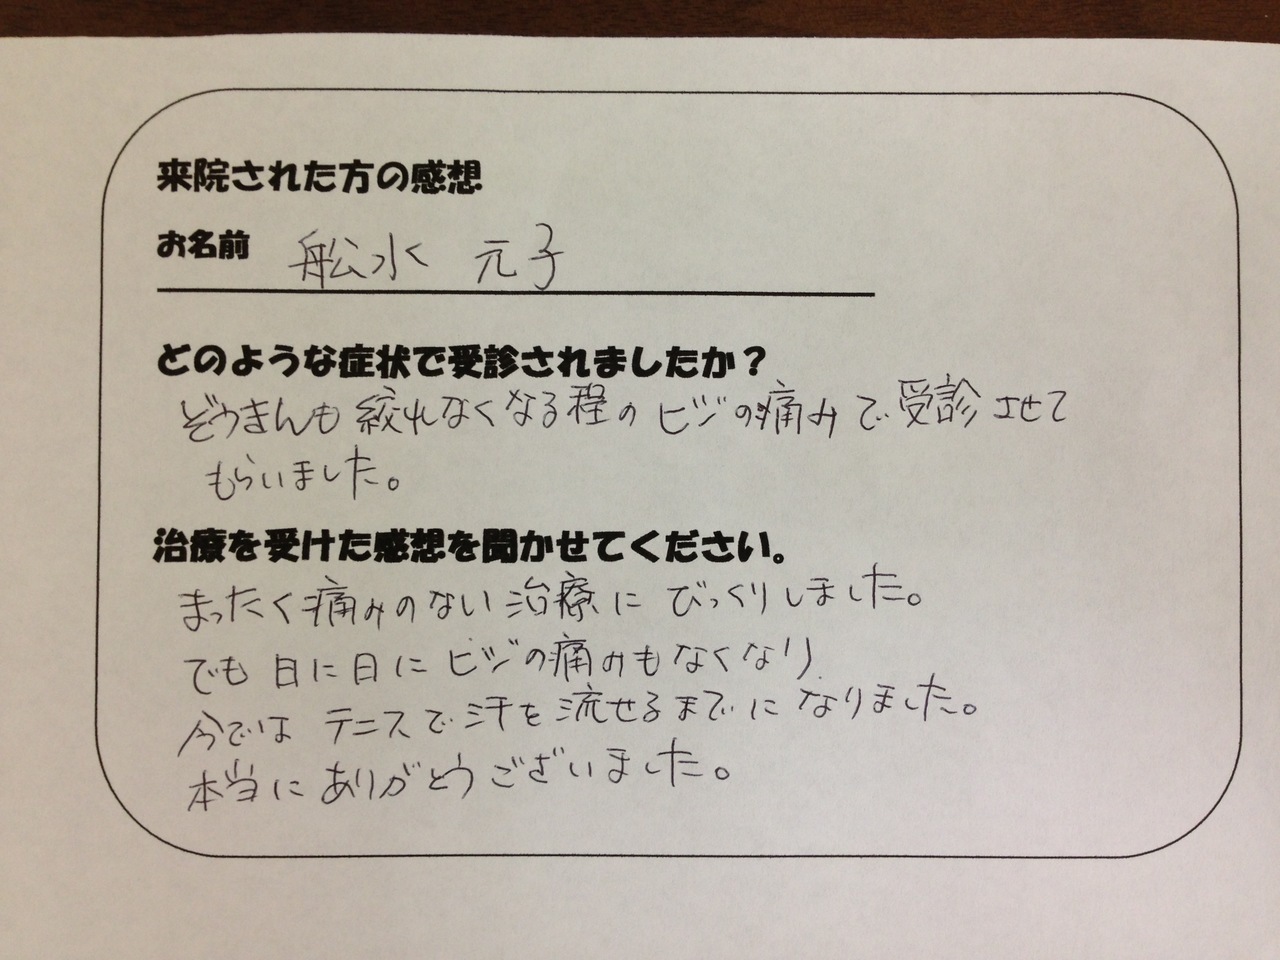 来院された方の感想
お名前 舩水 元子
どのような症状で受診されましたか？
ぞうきんも絞れなくなる程のヒジの痛みで受診させて
もらいました。
治療を受けた感想を聞かせてください。
まったく痛みのない治療にびっくりしました。
でも日に日にヒジの痛みもなくなり、
今ではテニスで汗を流せるまでになりました。
本当にありがとうございました。